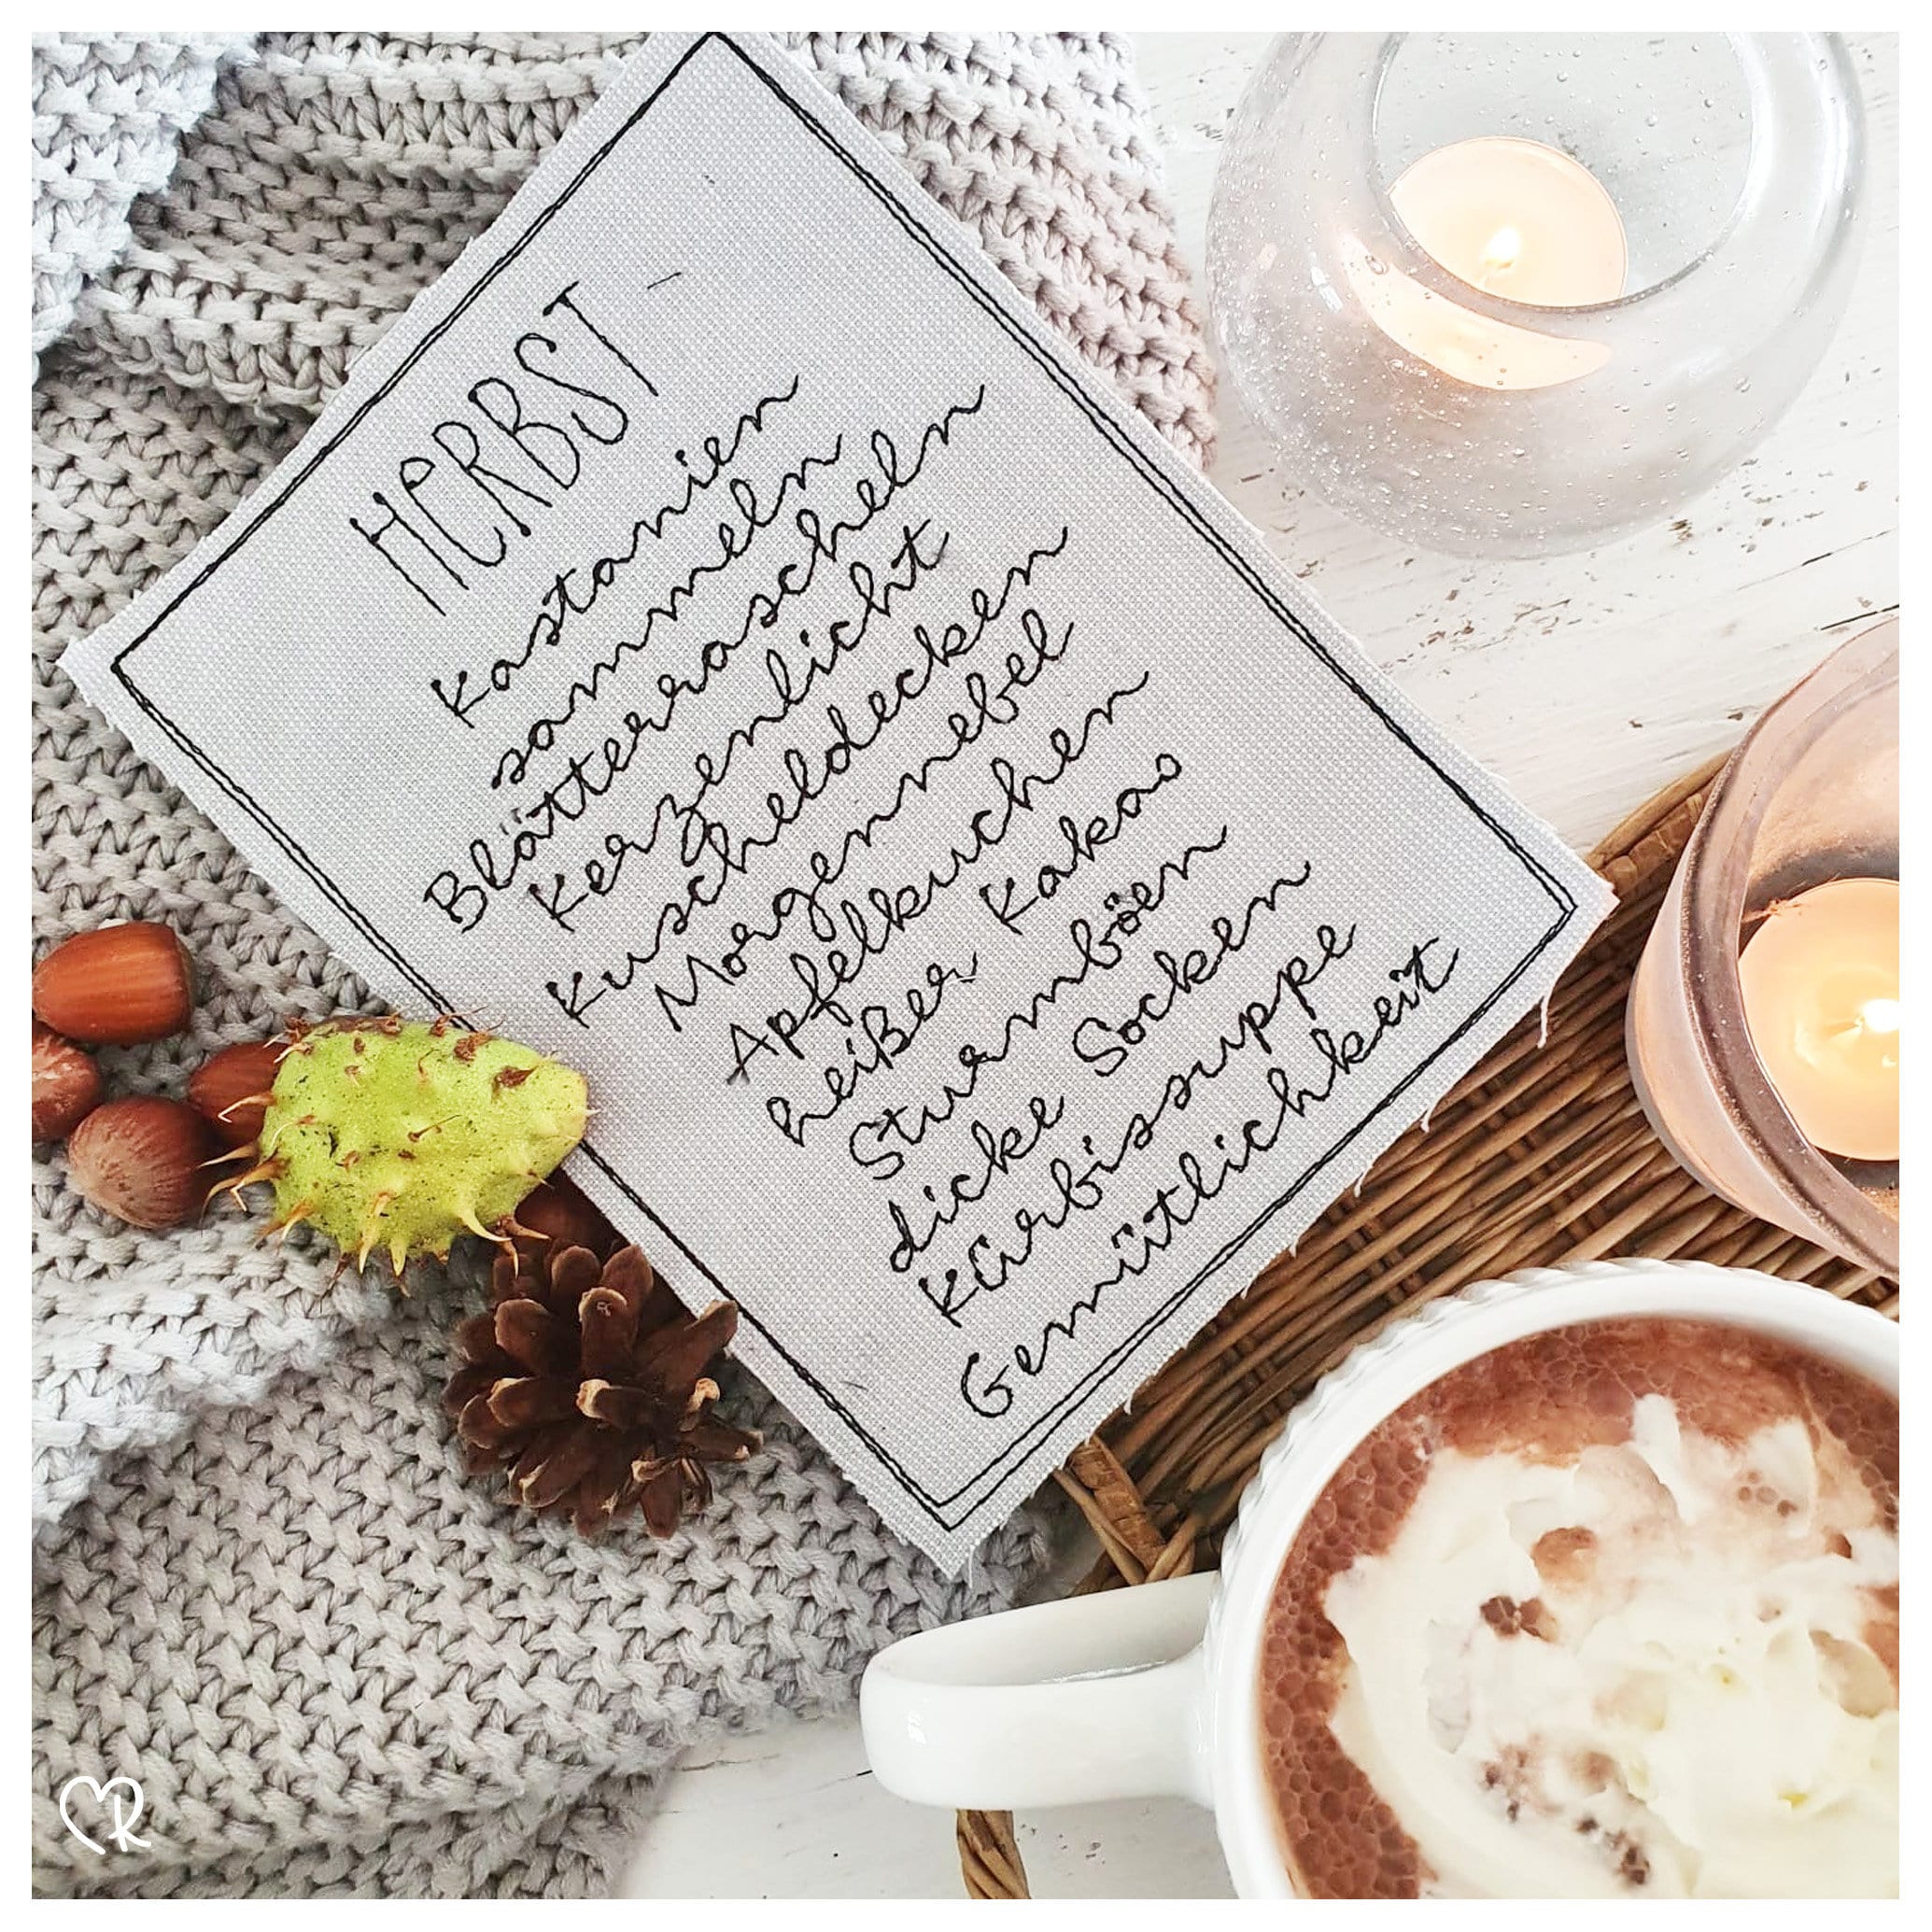 HERBST -
Kastanien
sammeln
Blätterrascheln
Kerzenlicht
Kuscheldecken
Morgennebel
Apfelkuchen
heißer Kakao
Sturmböen
dicke Socken
Kürbissuppe
Gemütlichkeit
R